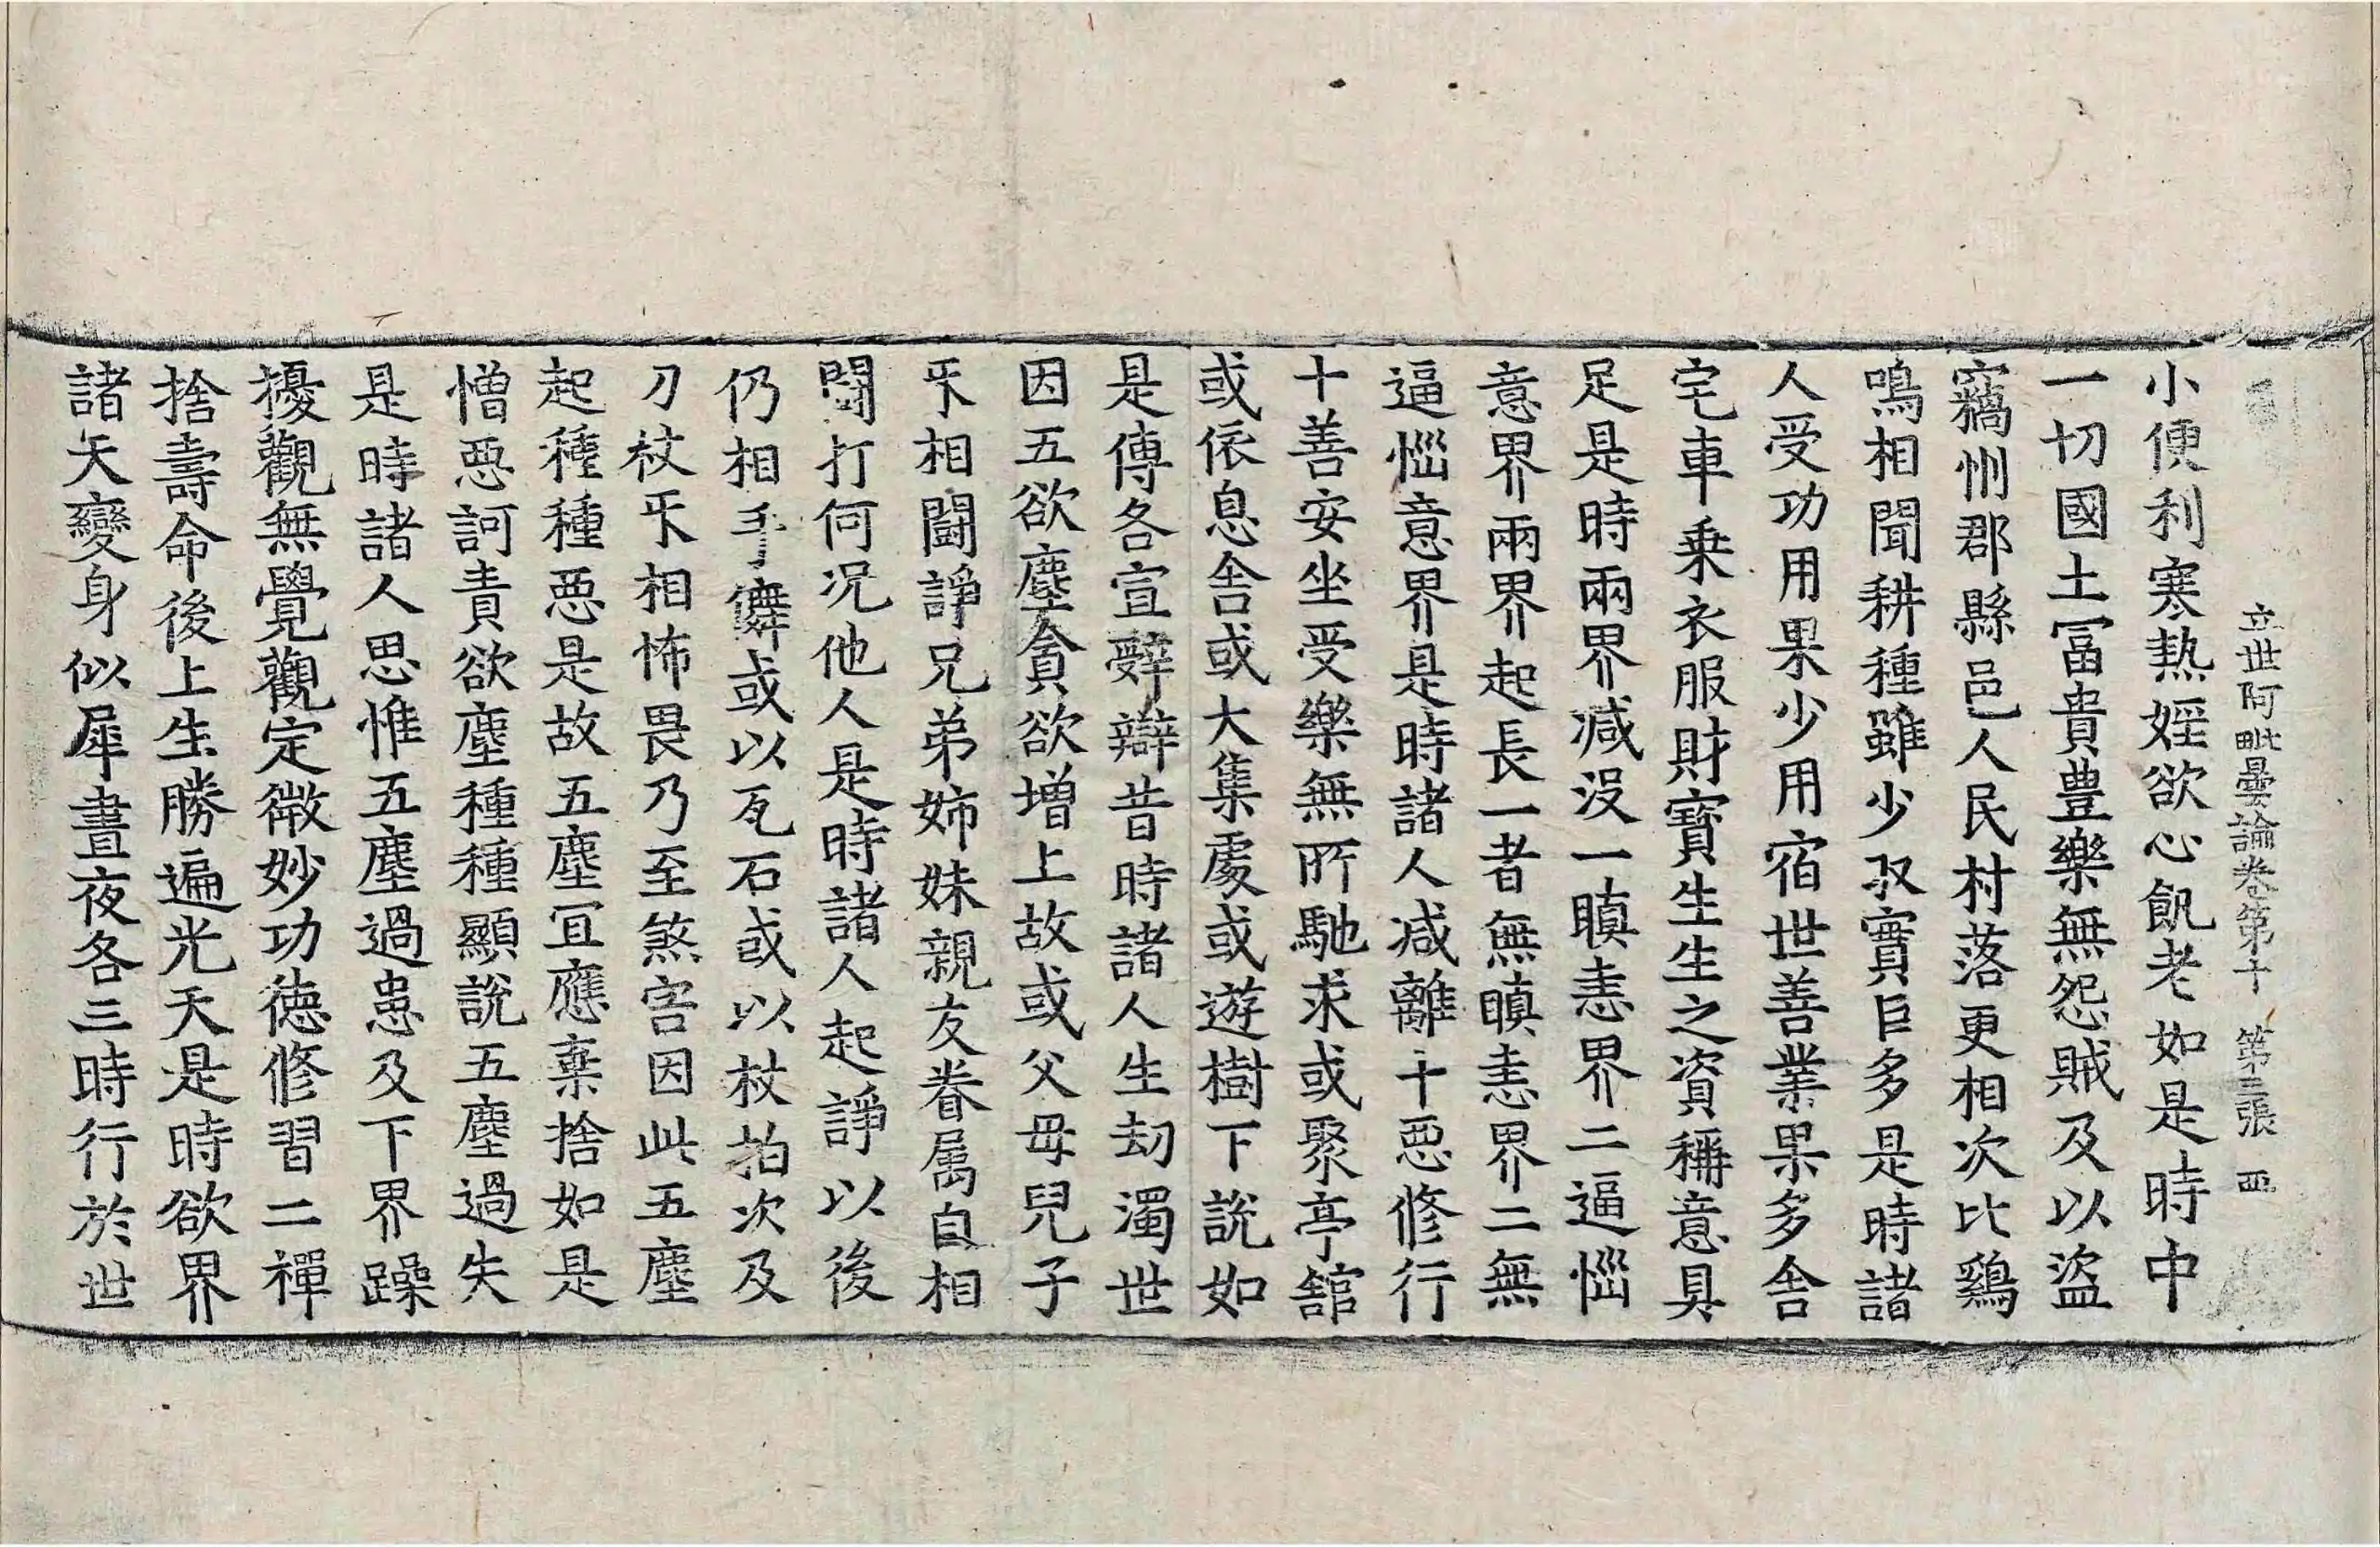 立世阿毗曇論卷第十 第三張 西
小便利寒熱婬欲心飢老如是時中
一切國土冨貴豊樂無怨賊及以盜
竊州郡縣邑人民村落更相次比鷄
鳴相聞耕種雖少収實巨多是時諸
人受功用果少用宿世善業果多舍
宅車乗衣服財寶生生之資稱意具
足是時兩界减没一瞋恚界二逼惱
意界兩界起長一者無瞋恚界二無
逼惱意界是時諸人减離十惡修行
十善安坐受樂無所馳求或聚亭舘
或依息舍或大集處或遊樹下說如
是傳各宣辤辯昔時諸人生劫濁世
因五欲塵貪欲增上故或父母兒子
互相鬪諍兄弟姊妹親友眷属自相
鬪打何况他人是時諸人起諍以後
仍相手𢷏或以瓦石或以杖拍次及
刀杖互相怖畏乃至煞害因此五塵
起種種惡是故五塵冝應棄捨如是
憎惡訶責欲塵種種顯說五塵過失
是時諸人思惟五塵過患及下界躁
擾觀無覺觀定微妙功德修習二禪
捨壽命後上生勝遍光天是時欲界
諸天變身似犀晝夜各三時行於世